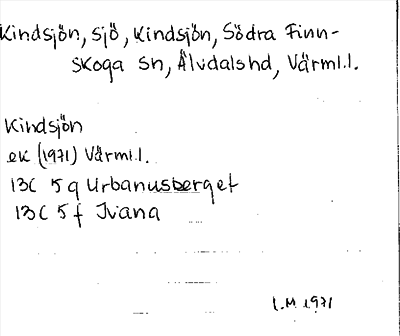 Kindsjön, sjö, Kindsjön, Södra Finn-
skoga sn, Älvdalshd, Värml.l.
Kindsjön
ek (1971) Värml.l.
13C 5g Urbanusberget
13C 5f Ivana
I.M 1971